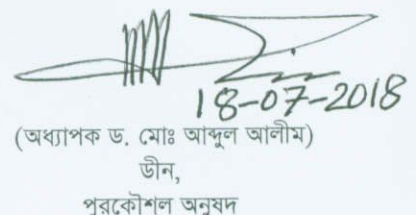 18-07-2018
(অধ্যাপক ড. মোঃ আব্দুল আলীম)
ডীন,
পুরকৌশল অনুষদ